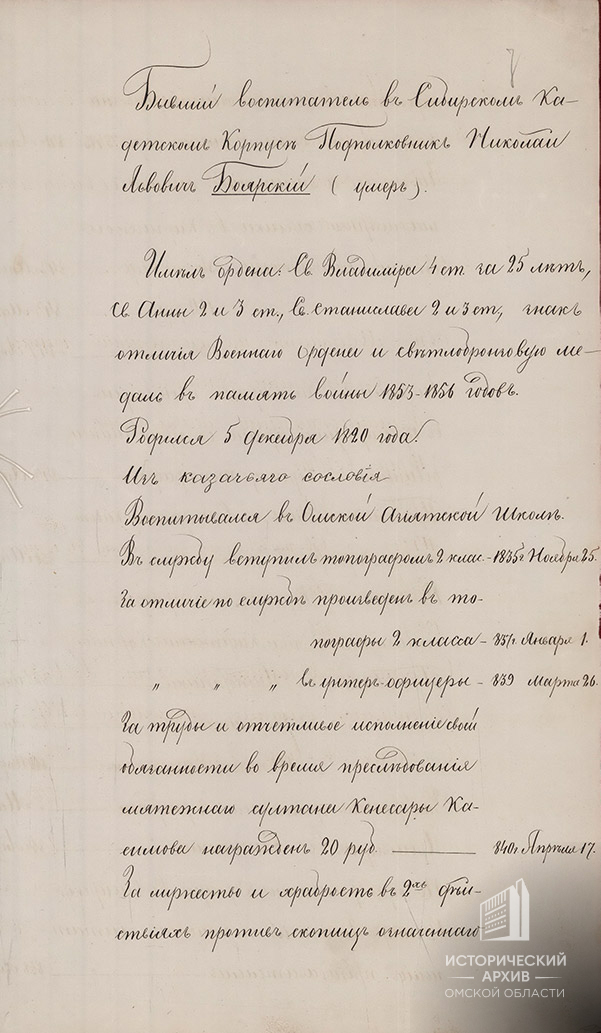 Бывшій воспитатель въ Сибирскомъ Ка-
детскомъ Корпусѣ Подполковникъ Николай
Львовичъ Боярскій (умеръ).
Имѣлъ ордена: Св. Владиміра 4 ст. за 25 лѣтъ,
Св. Анны 2 и 3 ст., Св. Станислава 2 и 3 ст., знакъ
отличія Военнаго Ордена и свѣтлобронзовую ме-
даль въ память войны 1853-1856 годовъ.
Родился 5 декабря 1820 года.
Изъ казачьяго сословія
Воспитывался въ Омской Азіятской Школѣ.
Въ службу вступилъ топографомъ 2 клас. - 1835 г. Ноября 25.
За отличіе по службѣ произведенъ въ то-
пографы 2 класса - 837 г. Января 1.
„ „ „ въ унтеръ-офицеры - 839 Марта 26.
За труды и отчетливое исполненіе своей
обязанности во время преслѣдованія
мятежнаго султана Кенесары Ка-
симова награжденъ 20 руб. — 840 г. Апрѣля 17.
За мужество и храбрость въ 2хъ дѣй-
ствіяхъ противъ скопищъ означеннаго
ИСТОРИЧЕСКИЙ
АРХИВ
ОМСКОЙ ОБЛАСТИ